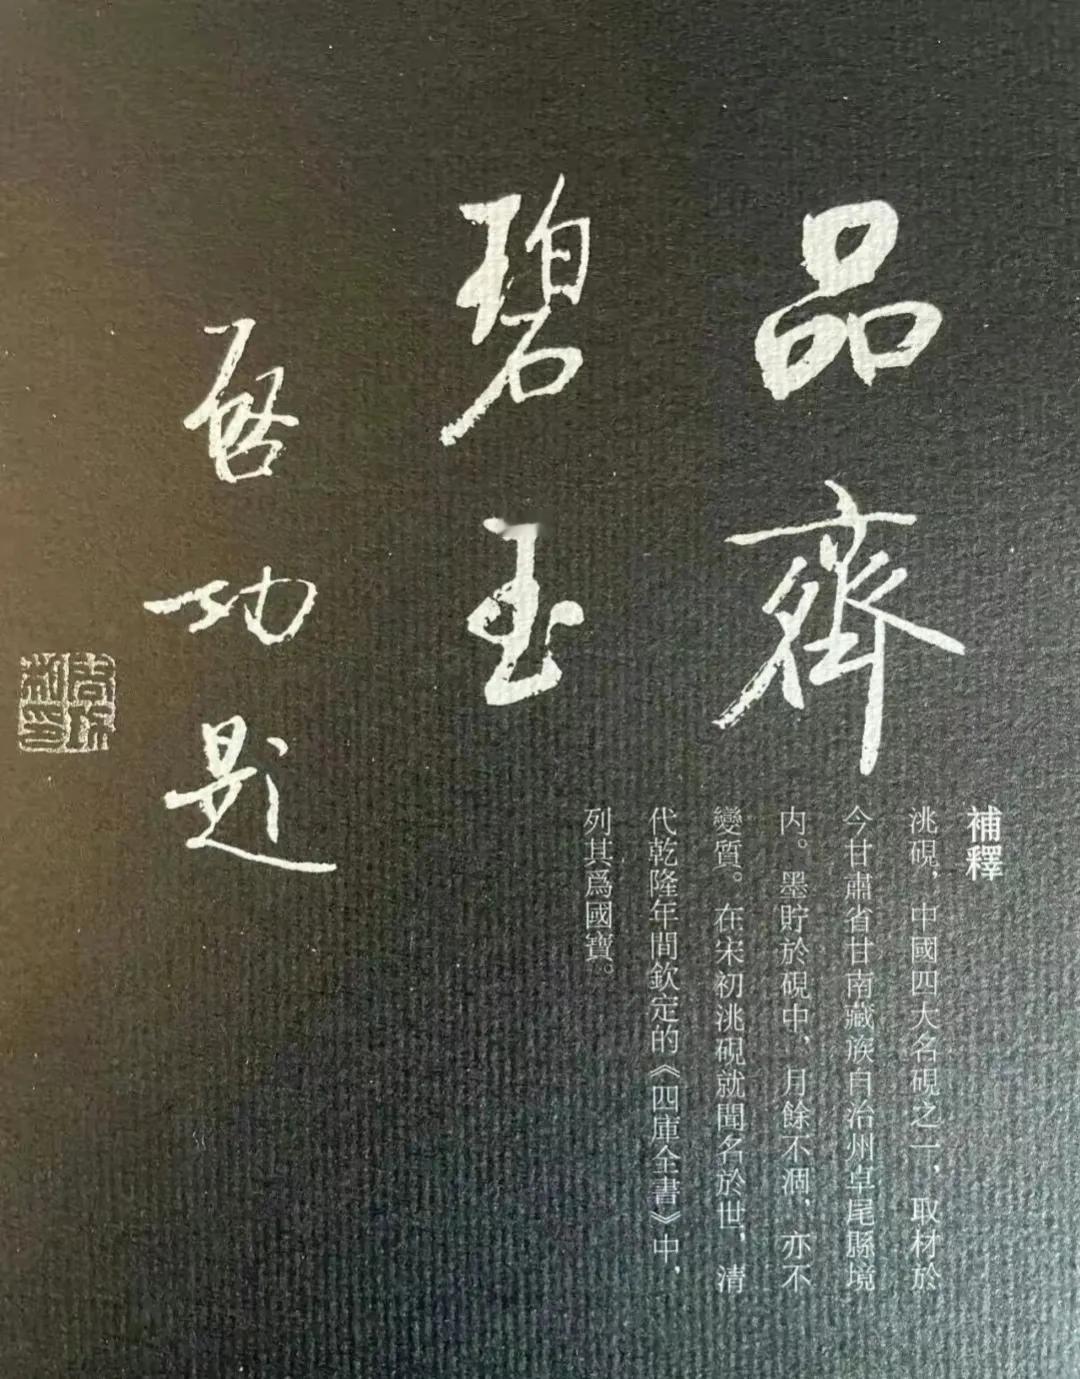 品齊
碧玉
啓功題
補釋
洮硯，中國四大名硯之一，取材於
今甘肅省甘南藏族自治州卓尾縣境
内。墨貯於硯中，月餘不凋，亦不
變質。在宋初洮硯就聞名於世，清
代乾隆年間欽定的《四庫全書》中，
列其爲國寶。